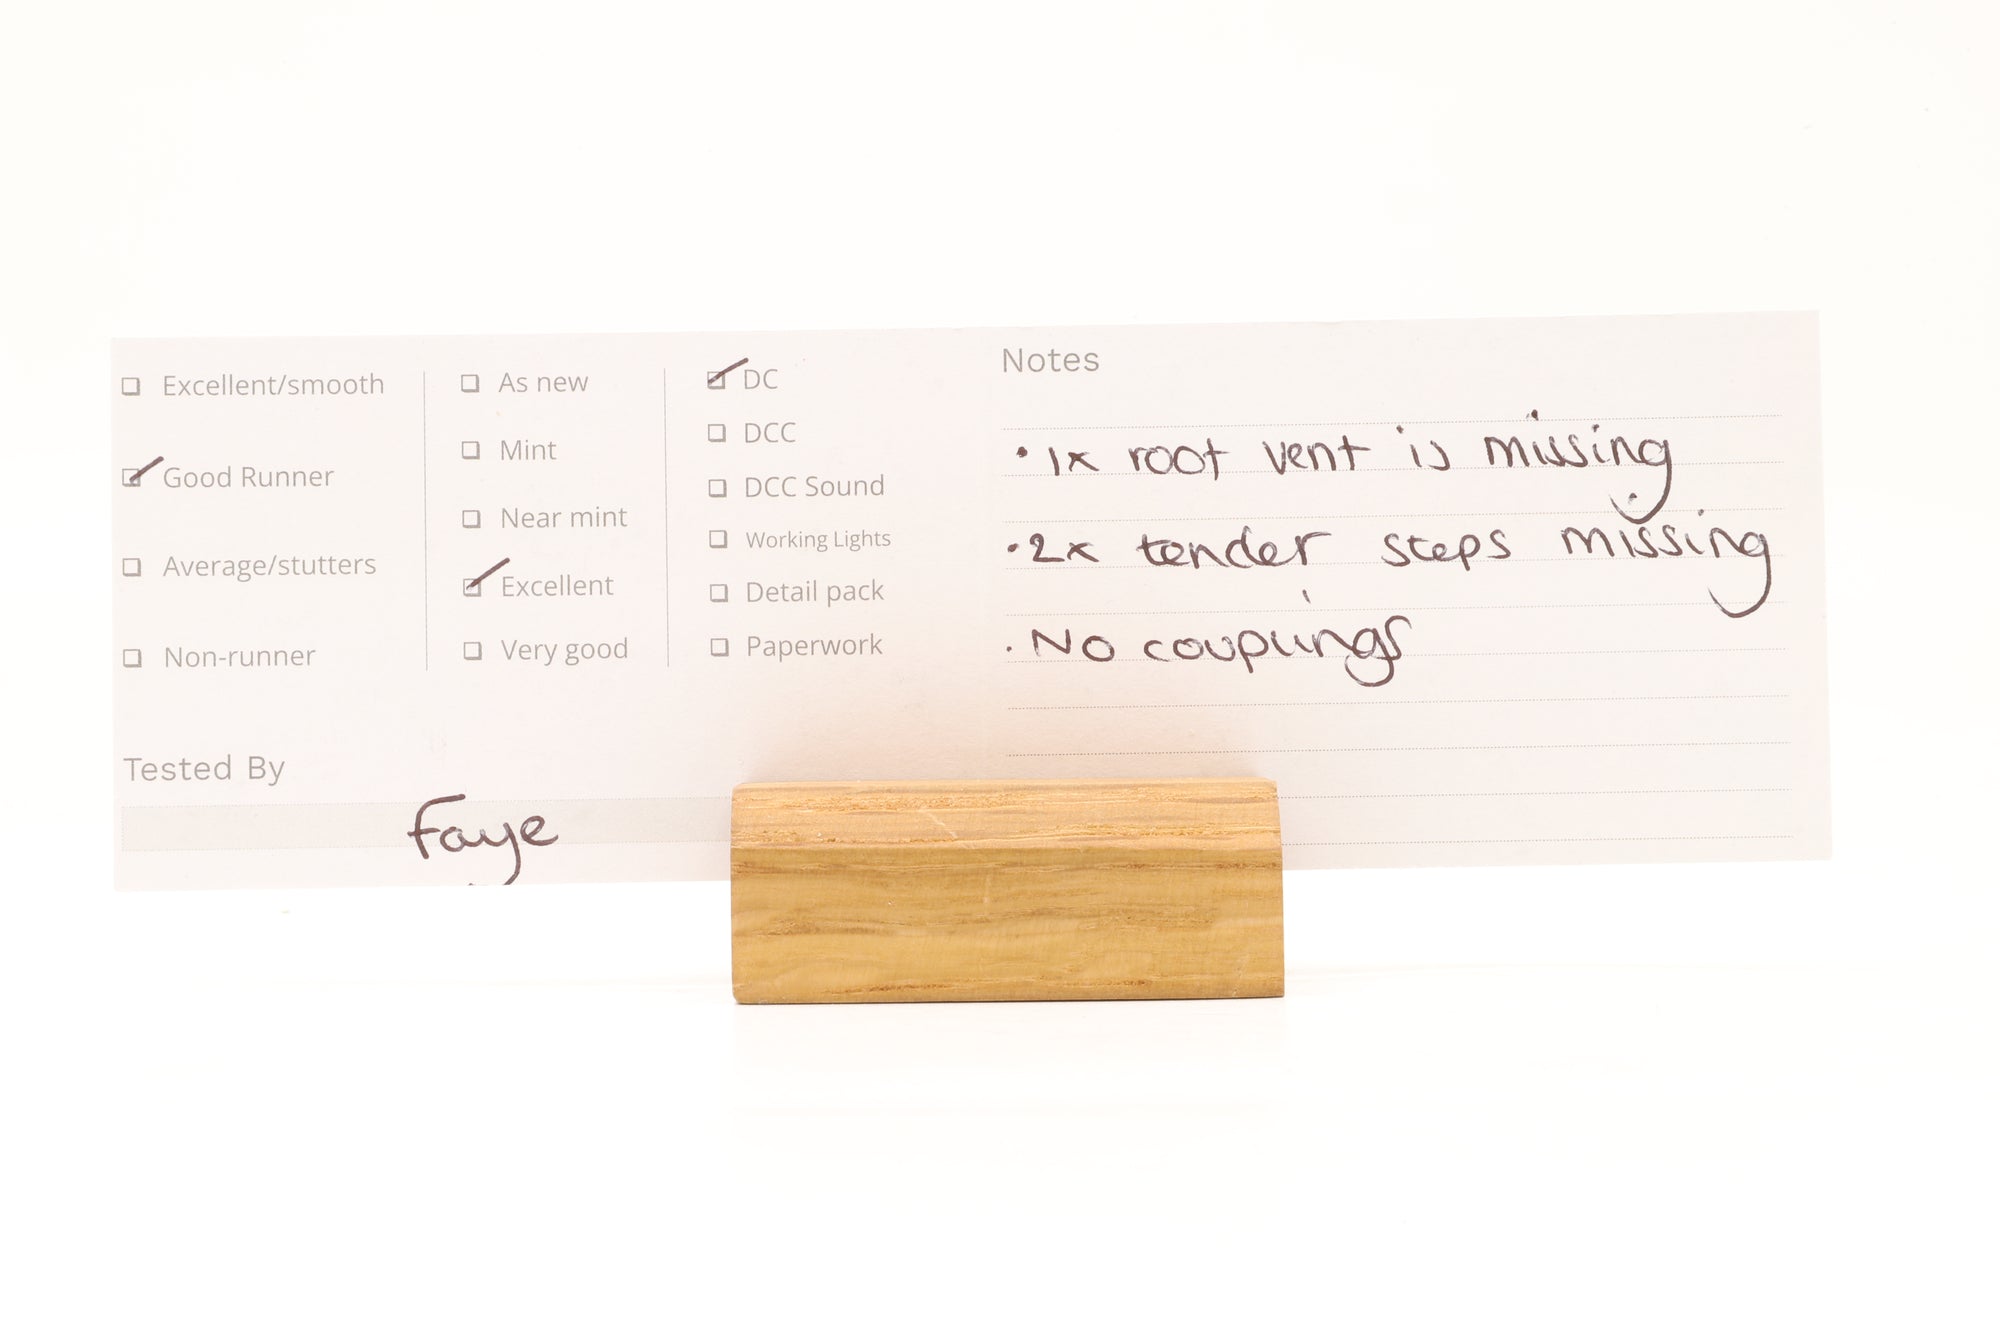 Excellent/smooth
Good Runner
Average/stutters
Non-runner
As new
Mint
Near mint
Excellent
Very good
DC
DCC
DCC Sound
Working Lights
Detail pack
Paperwork
Tested By
Faye
Notes
• 1x roof vent is missing
• 2x tender steps missing
• No couplings